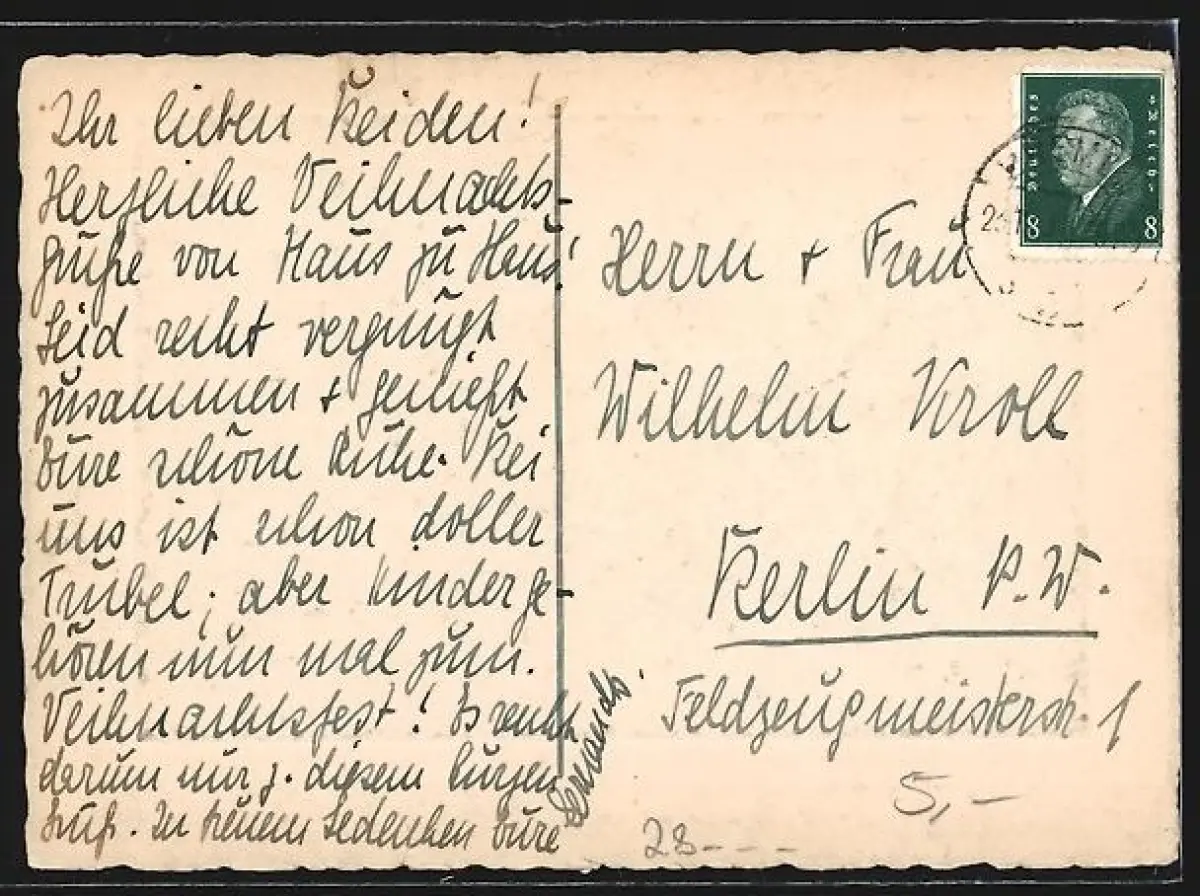 Ihr lieben Beiden!
Herzliche Weihnachts-
grüße von Haus zu Haus!
Seid recht vergnügt
zusammen + genießt
Eure schöne Ruhe. Bei
uns ist schon doller
Trubel, aber Kinder ge-
hören nun mal zum
Weihnachtsfest! Es reicht
darum nur z. diesem kurzen
Gruß. In treuem Gedenken Eure
Herrn + Frau
Wilhelm Kroll
Berlin S.W.
Feldzeugmeisterstr. 1
5,-
28---
Deutsches Reich
8 8